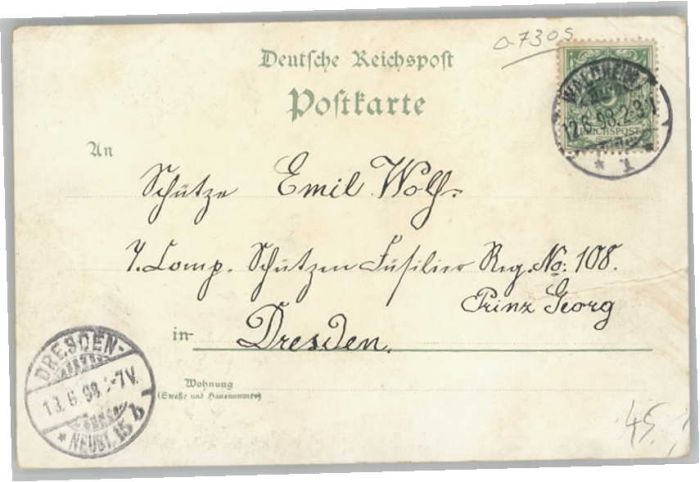 0730S
Deutsche Reichspost
Postkarte
WALDHEIM
12.6.98.2-3N
REICHSPOST
* 1 *
An
Schütze Emil Wolf.
Comp. Schützen Füsilier Reg. No: 108.
Prinz Georg
in Dresden.
Wohnung
(Straße und Hausnummer)
DRESDEN-
13.6.98.-7V.
* NEUST. 15 b
45,